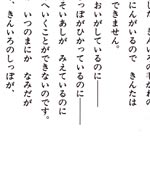 にんがいるので　きんたは
できません。
おいがしているのに――
っぽがひかっているのに――
そいあしが　みえているのに
へいくことができないのです。
いつのまにか　なみだが
、きんいろのしっぽが、